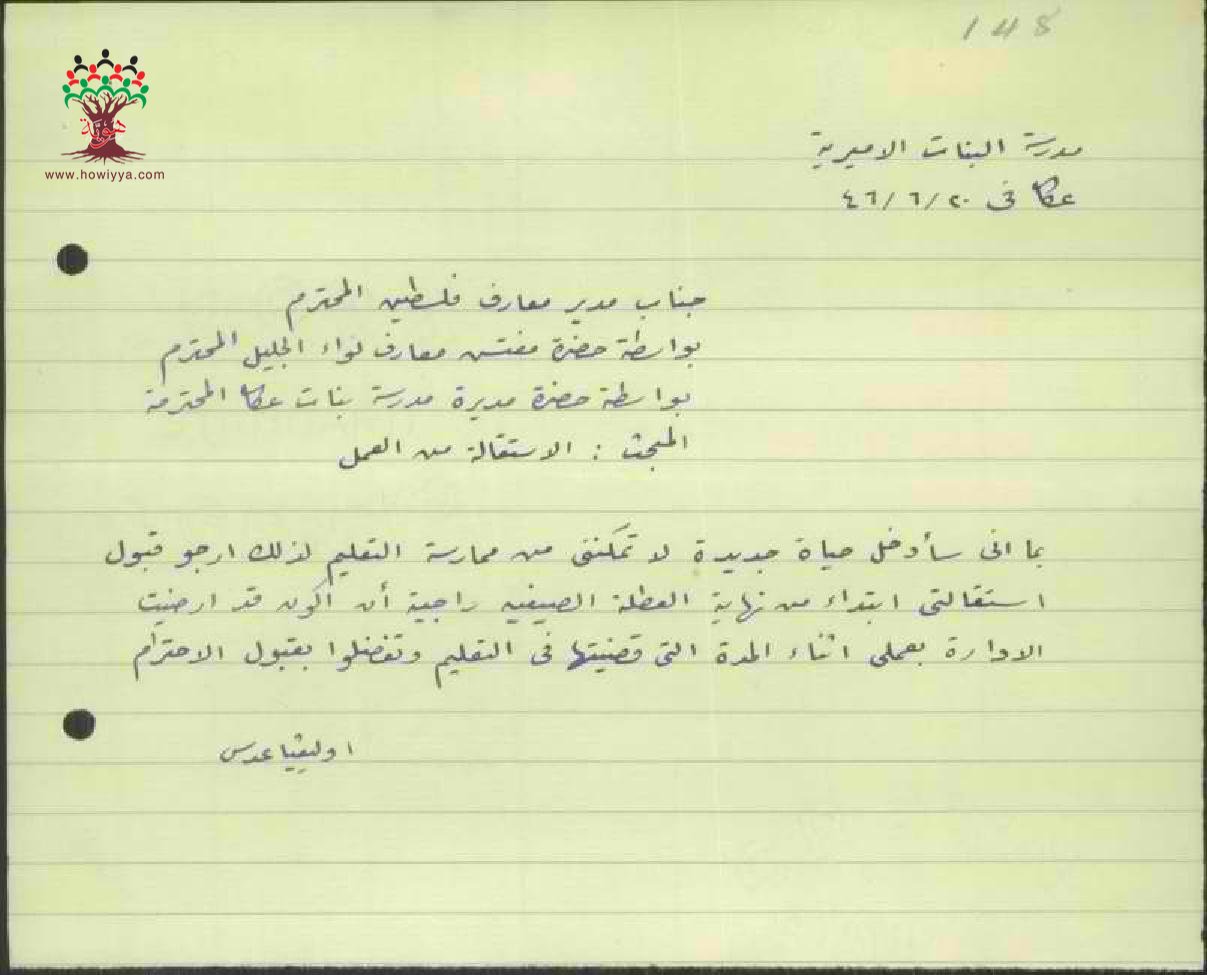 148
هوية
www.howiyya.com
مدرسة البنات الاميرية
عكا في ٢٠/٦/٤٦
جناب مدير معارف فلسطين المحترم
بواسطة حضرة مفتش معارف لواء الجليل المحترم
بواسطة حضرة مديرة مدرسة بنات عكا المحترمة
المبحث : الاستقالة من العمل
بما انى سأدخل حياة جديدة لا تمكننى من ممارسة التعليم لذلك ارجو قبول
استقالتى ابتداء من نهاية العطلة الصيفيه راجية أن اكون قد ارضيت
الادارة بعملى اثناء المدة التى قضيتها فى التعليم وتفضلوا بقبول الاحترام
اوليفيا عدس